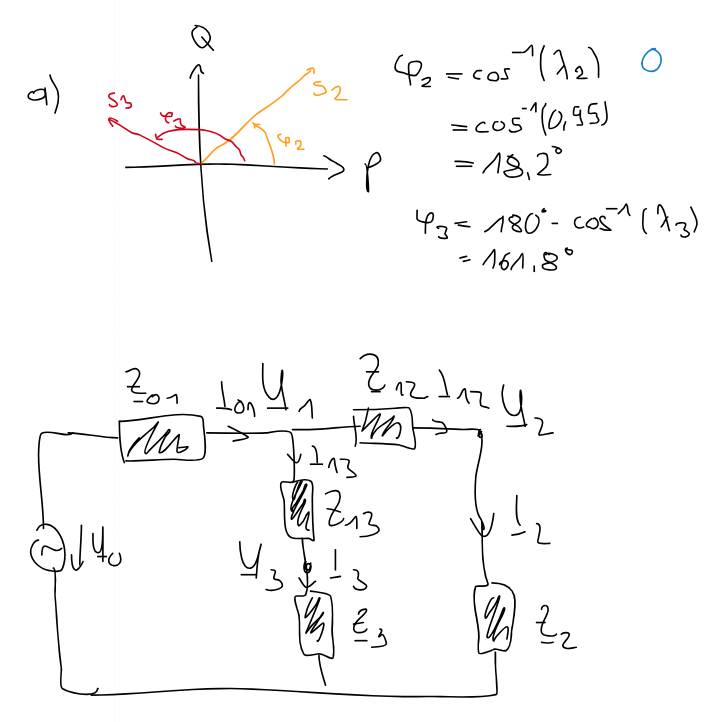 a)
Q
P
S2
S3
φ3
φ2
φ2 = cos⁻¹(λ2)
= cos⁻¹(0,95)
= 18,2°
φ3 = 180° - cos⁻¹(λ3)
= 161,8°
Z01 I01 U1 Z12 I12 U2
I13
Z13
U0 U3 I3 I2
Z3 Z2